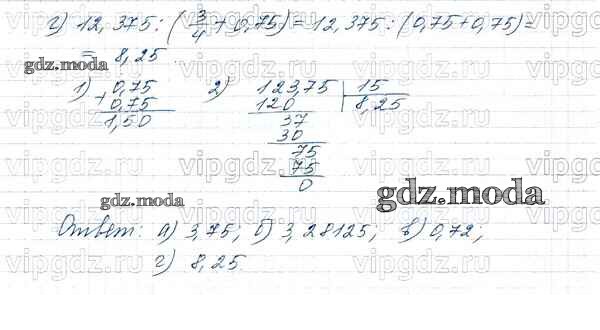 г) 12,375 : (3/4 + 0,75) = 12,375 : (0,75 + 0,75) =
= 8,25
gdz.moda
1) 0,75 2) 123,75 | 15
+ 0,75 120 8,25
1,50 37
30
75
75
0
gdz.moda
gdz.moda
Ответ: а) 3,75; б) 3,28125; в) 0,72;
г) 8,25.
vipgdz.ru